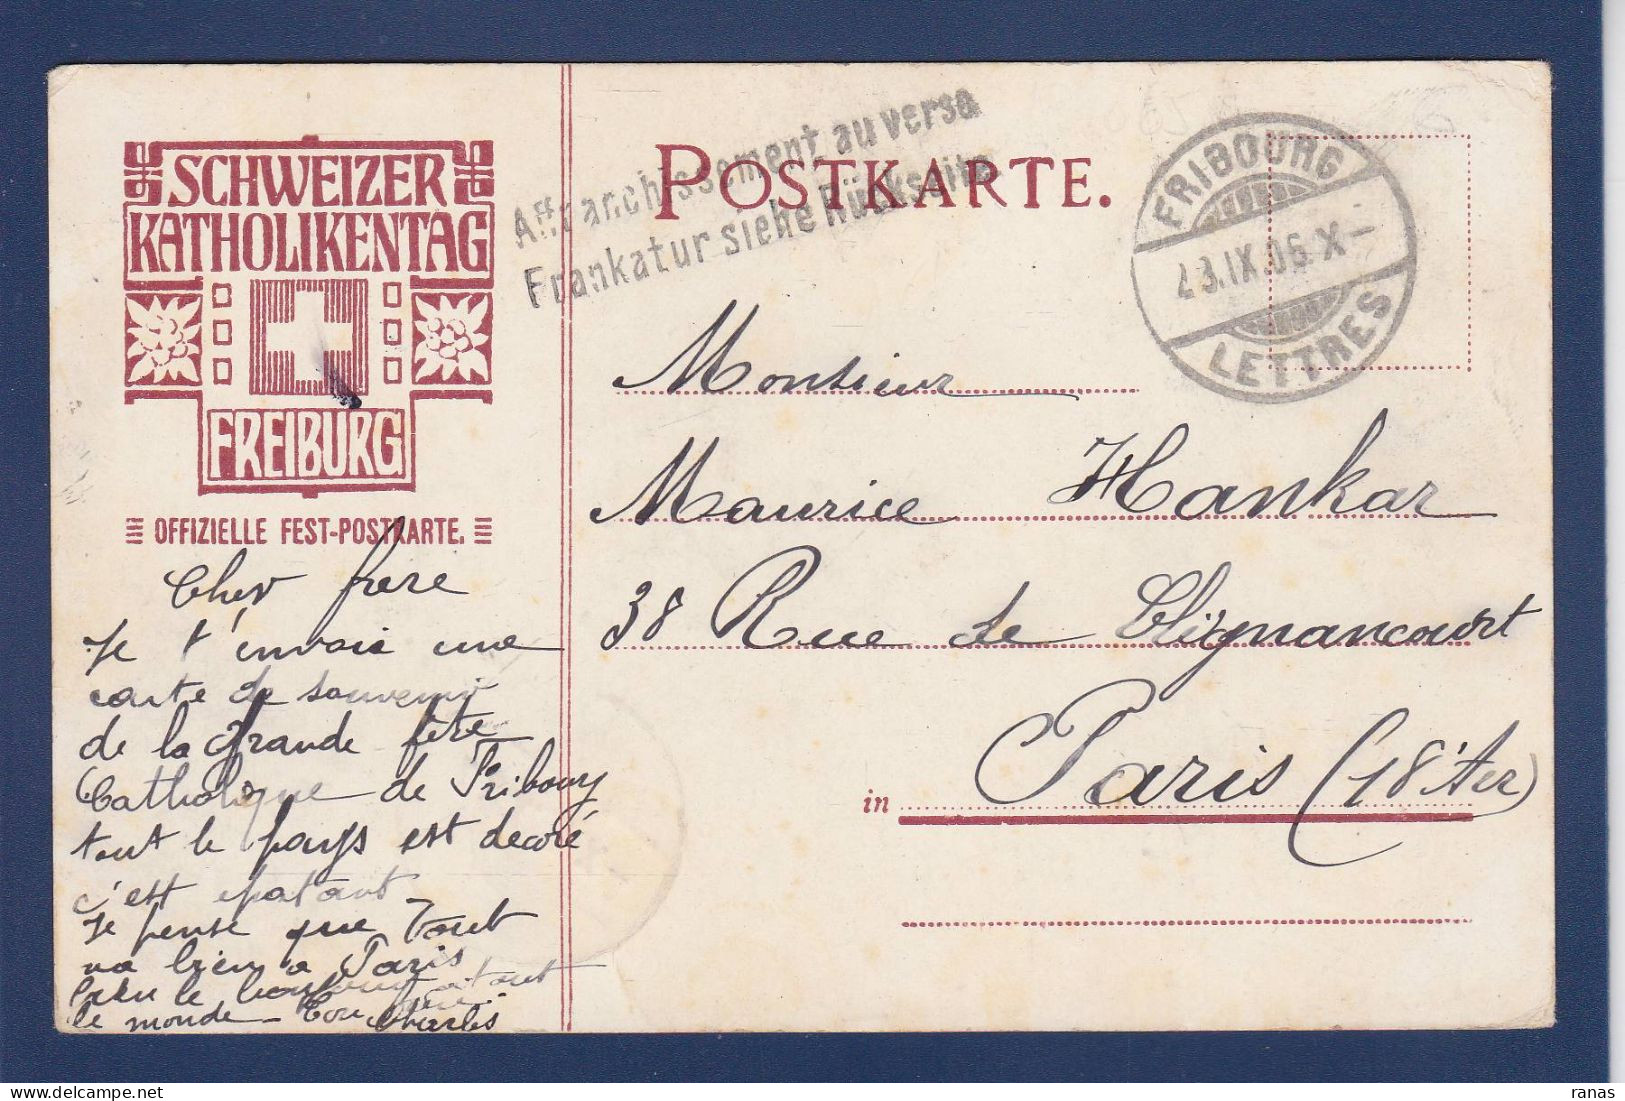 SCHWEIZER
KATHOLIKENTAG
FREIBURG
OFFIZIELLE FEST-POSTKARTE.
Affranchissement au verso
Frankatur siehe Rückseite
POSTKARTE.
FRIBOURG
23.IX.06.X-
LETTRES
Monsieur
Maurice Hankar
38 Rue de Clignancourt
in Paris (18'Arr)
Cher frere
Je t'envoie une
carte de souvenir
de la grande fete
Catholique de Fribourg
tout le pays est decoré
c'est epatant
Je pense que Tout
va bien a Paris
bien le bonjour a tout
le monde - Ton Charles
ranas